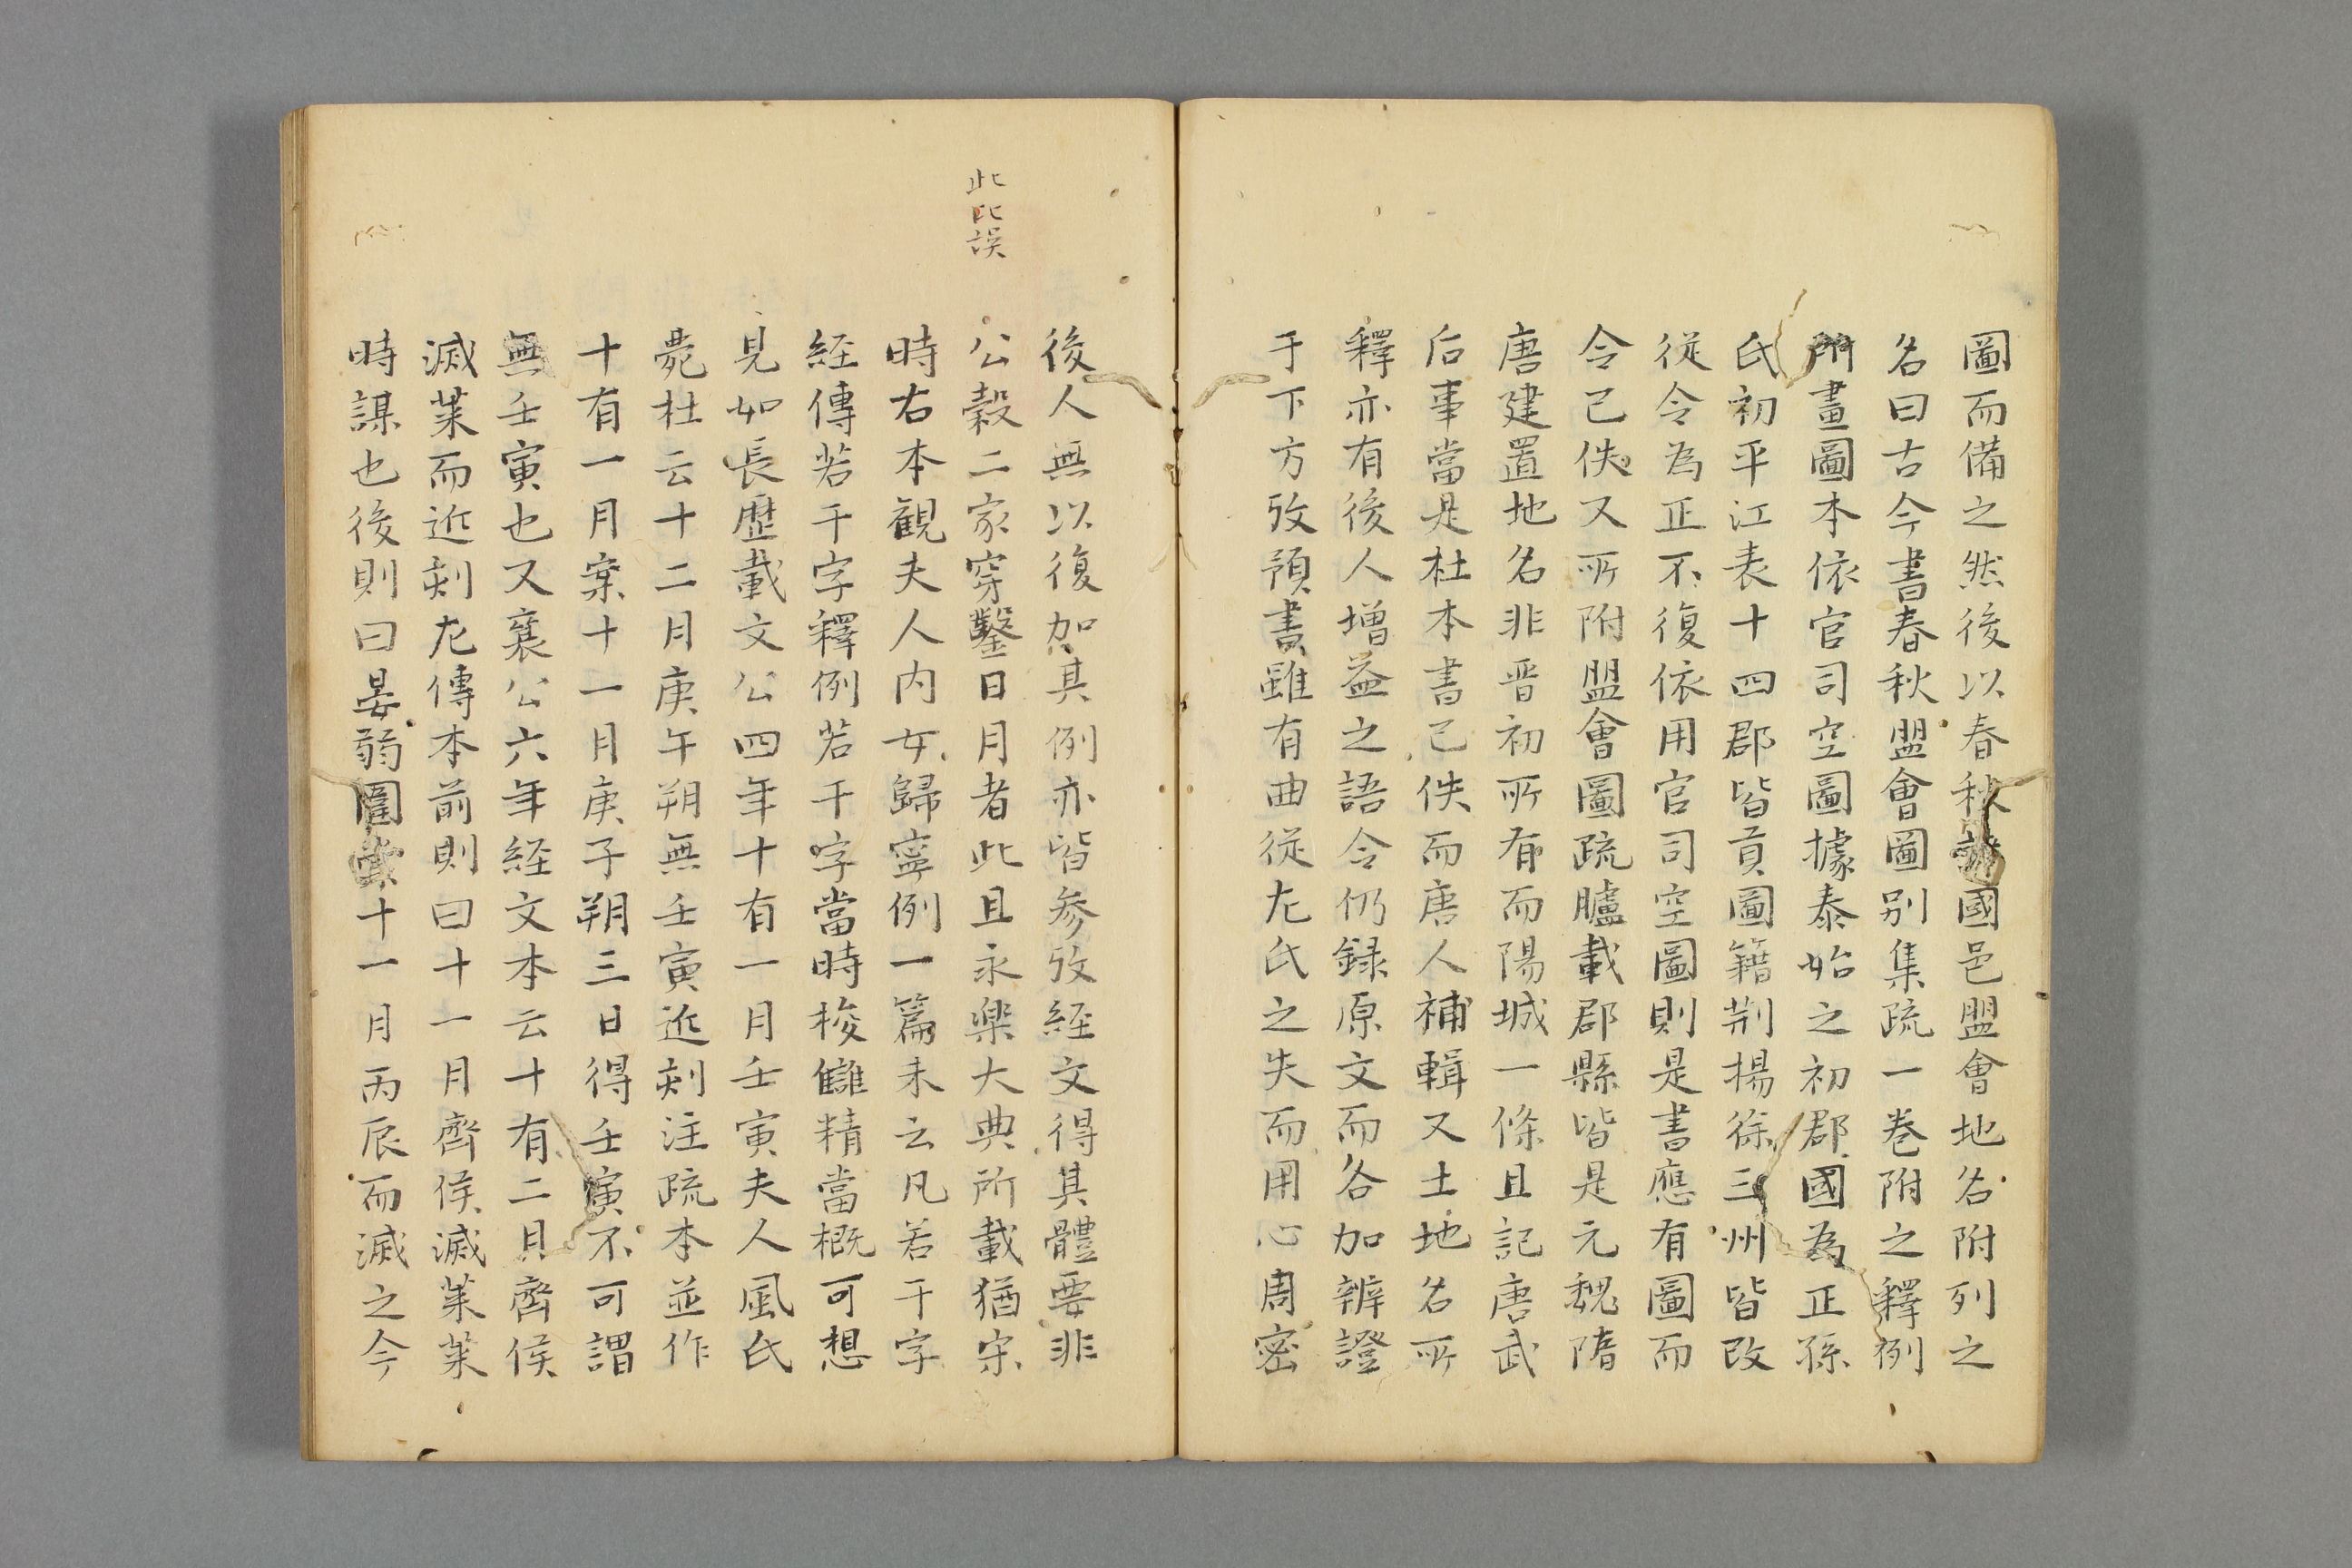 圖而備之然後以春秋諸國邑盟會地名附列之
名曰古今書春秋盟會圖別集疏一卷附之釋例
所畫圖本依官司空圖據泰始之初郡國為正孫
氏初平江表十四郡皆貢圖籍荆揚徐三州皆改
從今為正不復依用官司空圖則是書應有圖而
今已佚又所附盟會圖疏臚載郡縣皆是元魏隋
唐建置地名非晋初所有而陽城一條且記唐武
后事當是杜本書已佚而唐人補輯又土地名所
釋亦有後人增益之語今仍録原文而各加辨證
于下方攷預書雖有曲從左氏之失而用心周密
後人無以復加其例亦皆参攷経文得其體要非
公穀二家穿鑿日月者此且永樂大典所載猶宋
時右本観夫人内女歸寧例一篇末云凡若干字
経傳若干字釋例若干字當時梭讎精當概可想
見如長歴載文公四年十有一月壬寅夫人風氏
薨杜云十二月庚午朔無壬寅近刻注疏本並作
十有一月案十一月庚子朔三日得壬寅不可謂
無壬寅也又襄公六年経文本云十有二月齊侯
滅莱而近刻左傳本前則曰十一月齊侯滅莱莱
時謀也後則曰晏弱圍棠十一月丙辰而滅之今
此比誤